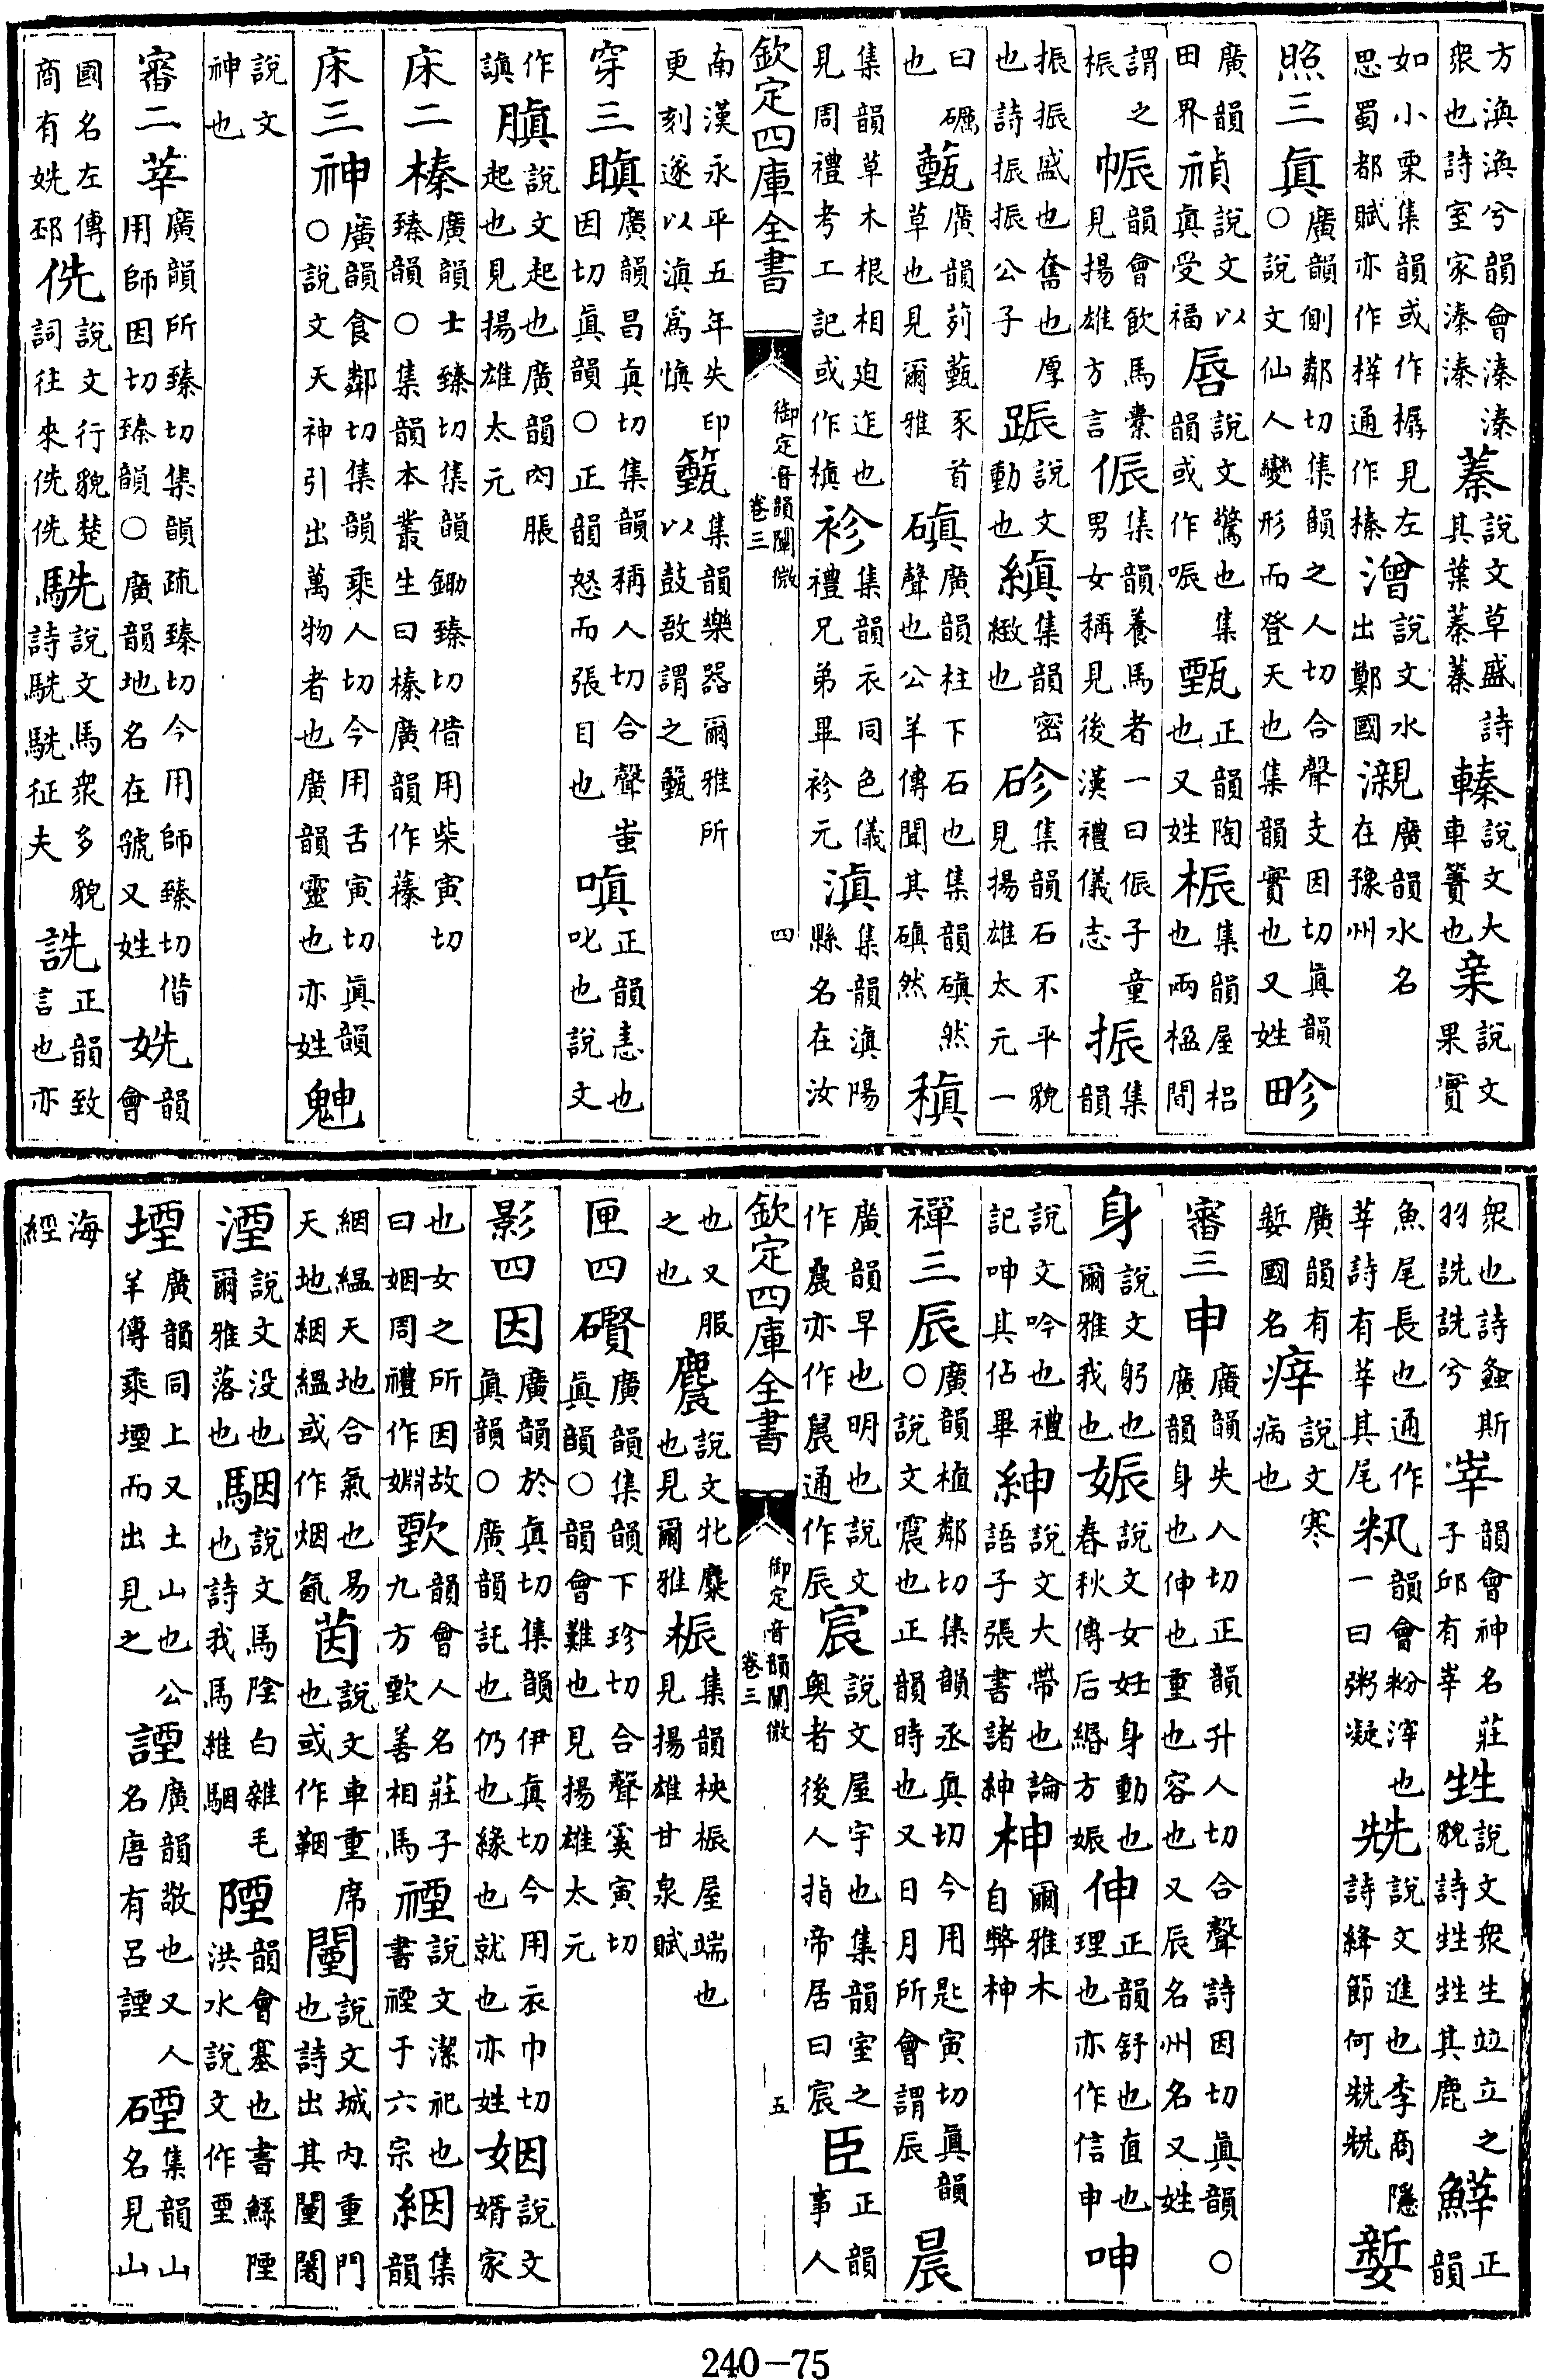 方渙渙兮韻會溱溱衆也詩室家溱溱蓁說文草盛詩其葉蓁蓁轃說文大車簀也亲說文果實
如小栗集韻或作樼見左思蜀都賦亦作㮙通作榛潧說文水出鄭國瀙廣韻水名在豫州
照三眞廣韻側鄰切集韻之人切合聲支因切眞韻○說文仙人變形而登天也集韻實也又姓畛
廣韻田界禛說文以眞受福唇說文驚也集韻或作㖘甄正韻陶也又姓桭集韻屋梠也兩楹間
謂之桭帪韻會飲馬橐見揚雄方言侲集韻養馬者一曰侲子童男女稱見後漢禮儀志振集韻
振振盛也奮也厚也詩振振公子踬說文動也縝集韻密緻也砛集韻石不平貌見揚雄太元一
曰礪也薽廣韻茢薽豕首草也見爾雅磌廣韻柱下石也集韻磌然聲也公羊傳聞其磌然稹
集韻草木根相迫迮也見周禮考工記或作槙袗集韻衣同色儀禮兄弟畢袗元滇集韻滇陽縣名在汝
欽定四庫全書 御定音韻闡微 卷三 四
南漢永平五年失印更刻遂以滇爲慎籈集韻樂器爾雅所以鼓敔謂之籈
穿三瞋廣韻昌眞切集韻稱人切合聲蚩因切眞韻○正韻怒而張目也嗔正韻恚也叱也說文
作謓䐜說文起也廣韻肉脹起也見揚雄太元
床二榛廣韻士臻切集韻鋤臻切借用柴寅切臻韻○集韻本叢生曰榛廣韻作蓁
床三神廣韻食鄰切集韻乘人切今用舌寅切眞韻○說文天神引出萬物者也廣韻靈也亦姓䰠
說文神也
審二莘廣韻所臻切集韻疏臻切今用師臻切借用師因切臻韻○廣韻地名在虢又姓姺韻會
國名左傳商有姺邳侁說文行貌楚詞往來侁侁駪說文馬衆多貌詩駪駪征夫詵正韻致言也亦
衆也詩螽斯羽詵詵兮峷韻會神名莊子邱有峷甡說文衆生竝立之貌詩甡甡其鹿鯓正韻
魚尾長也通作莘詩有莘其尾籸韻會粉滓也一曰粥凝兟說文進也李商隱詩絳節何兟兟㜪
廣韻有㜪國名㾕說文寒病也
審三申廣韻失人切正韻升人切合聲詩因切眞韻○廣韻身也伸也重也容也又辰名州名又姓
身說文躬也爾雅我也娠說文女妊身動也春秋傳后緡方娠伸正韻舒也直也理也亦作信申呻
說文吟也禮記呻其佔畢紳說文大帶也論語子張書諸紳柛爾雅木自弊柛
禪三辰廣韻植鄰切集韻丞眞切今用匙寅切眞韻○說文震也正韻時也又日月所會謂辰晨
廣韻早也明也說文作䢅亦作晨通作辰宸說文屋宇也集韻室之奧者後人指帝居曰宸臣正韻事人
欽定四庫全書 御定音韻闡微 卷三 五
也又服之也麎說文牝麋也見爾雅桭集韻柍桭屋端也見揚雄甘泉賦
匣四礥廣韻集韻下珍切合聲奚寅切眞韻○韻會難也見揚雄太元
影四因廣韻於眞切集韻伊眞切今用衣巾切眞韻○廣韻託也仍也緣也就也亦姓姻說文壻家
也女之所因故曰姻周禮作婣㱃韻會人名莊子九方㱃善相馬禋說文潔祀也書禋于六宗絪集韻
絪緼天地合氣也易天地絪緼或作烟氤茵說文車重席也或作鞇闉說文城內重門也詩出其闉闍
湮說文没也爾雅落也駰說文馬陰白雜毛也詩我馬維駰陻韻會塞也書鯀陻洪水說文作垔
堙廣韻同上又土山也公羊傳乘堙而出見之諲廣韻敬也又人名唐有呂諲硾集韻山名見山
海經
240-75